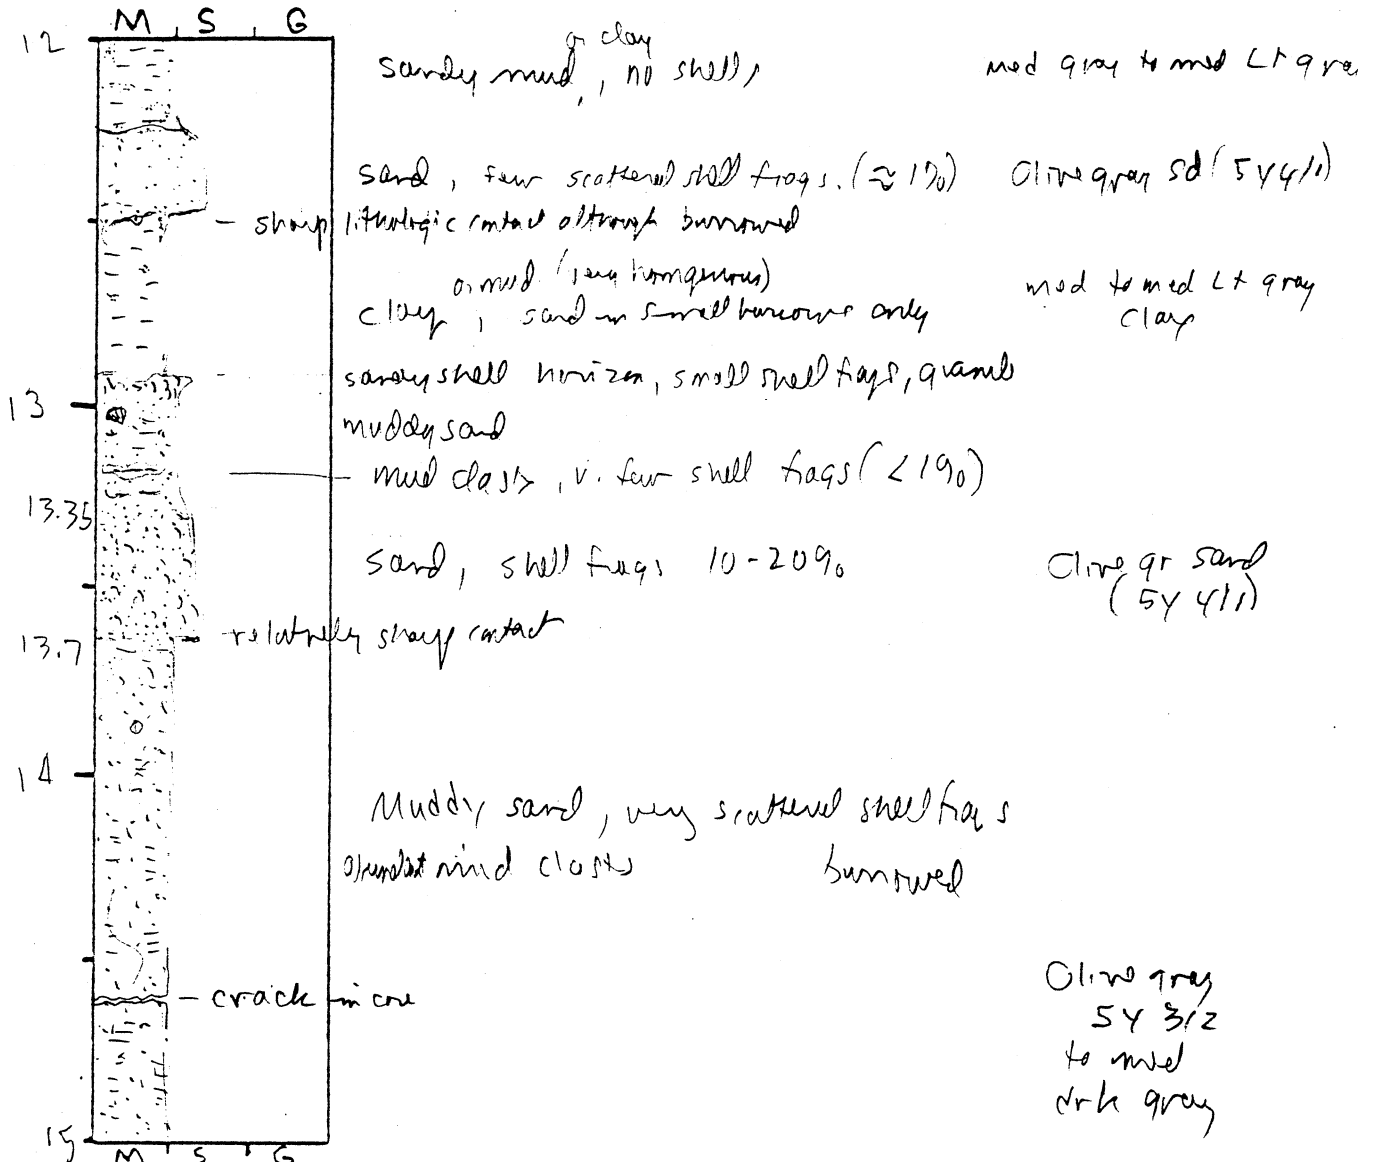 M S G
12
or clay
sandy mud, no shells
med gray to med Lt gra
sand, few scattered shell frags. (≈1%)
Olive gray sd (5Y4/1)
- sharp lithologic contact although burrowed
or mud (very homgenous)
clay, sand in small burrows only
med to med Lt gray
clay
sandy shell horizon, small shell frags, granule
13
muddy sand
mud clasts, v. few shell frags (<1%)
13.35
sand, shell frags 10-20%
Olive gr sand
(5Y 4/1)
- relatively sharp contact
13.7
14
Muddy sand, very scattered shell frags
abundant mud clasts burrowed
- crack in core
Olive gray
5Y 3/2
to med
drk gray
15
M S G